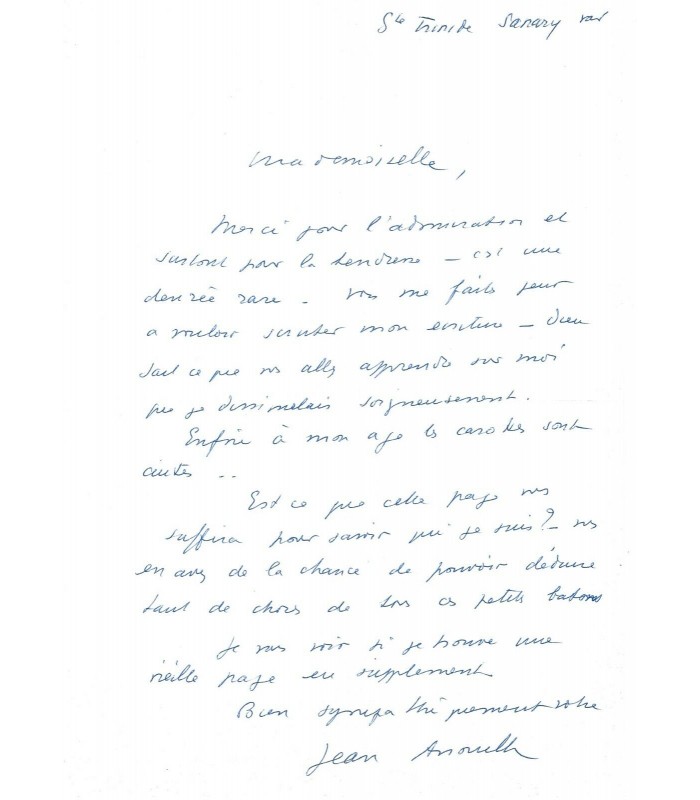 Ste Trinide Sanary var
Mademoiselle,
Merci pour l'admiration et
surtout pour la tendresse – c'est une
denrée rare – vous me faites peur
a vouloir scruter mon ecriture – Dieu
sait ce que vs allez apprendre sur moi
que je dissimulais soigneusement.
Enfin à mon age les carottes sont
cuites ..
Est ce que cette page vs
suffira pour savoir qui je suis? – vs
en avez de la chance de pouvoir déduire
tant de choses de tous ces petits batons
Je vais voir si je trouve une
vieille page en supplement
Bien sympathiquement votre
Jean Anouilh